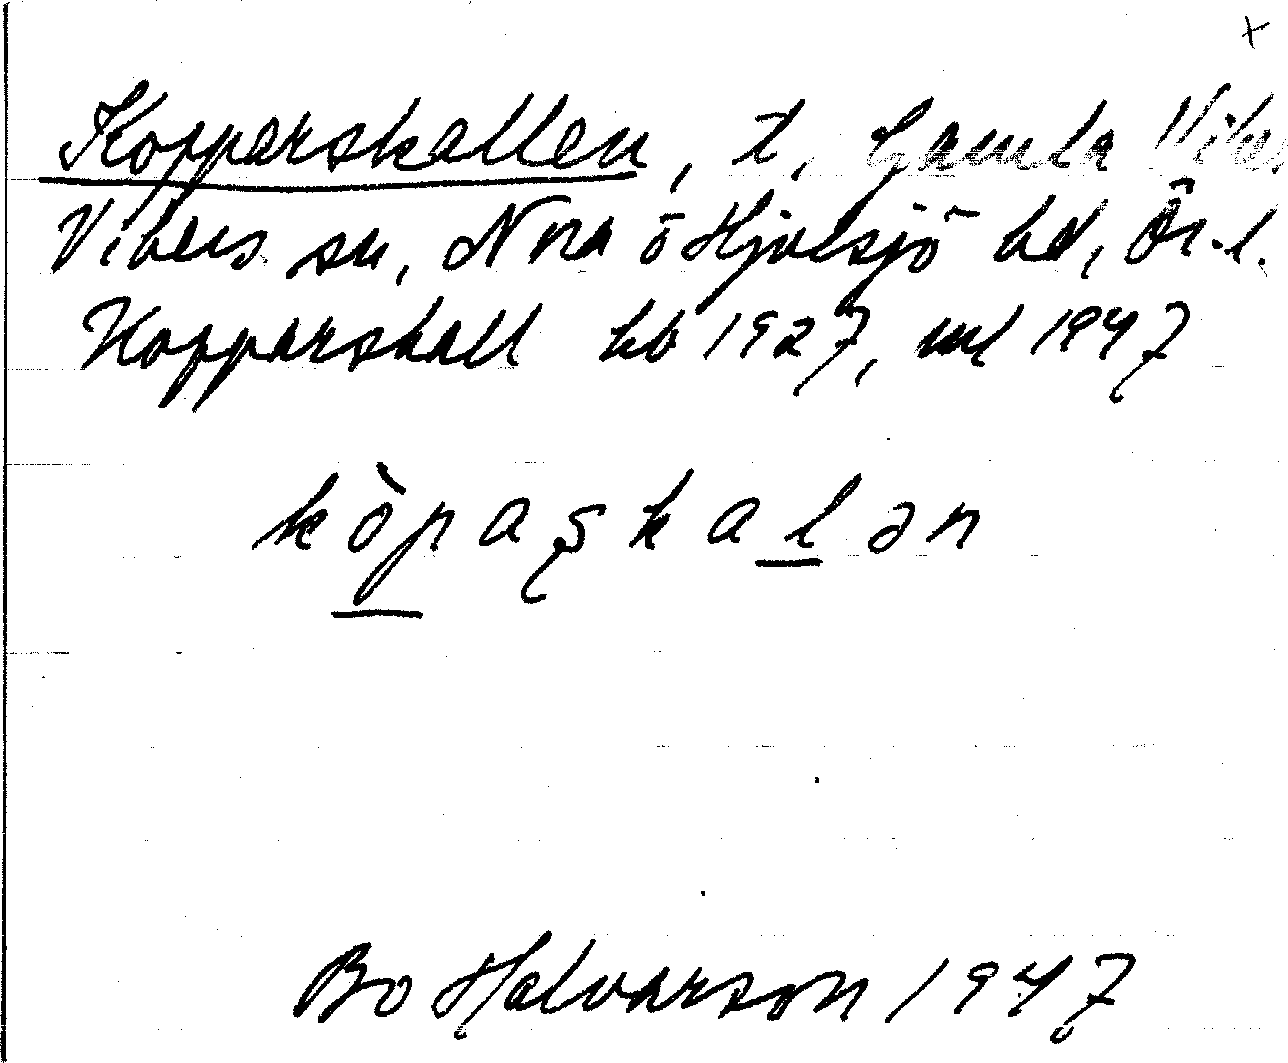 x
Kopparskallen, t, Gamla Viker
Vikers sn, Nora o Hjulsjö bd, Ör. l.
Kopparskall kb 1927, ml 1947
kòpaşkalən
Bo Halvarson 1947